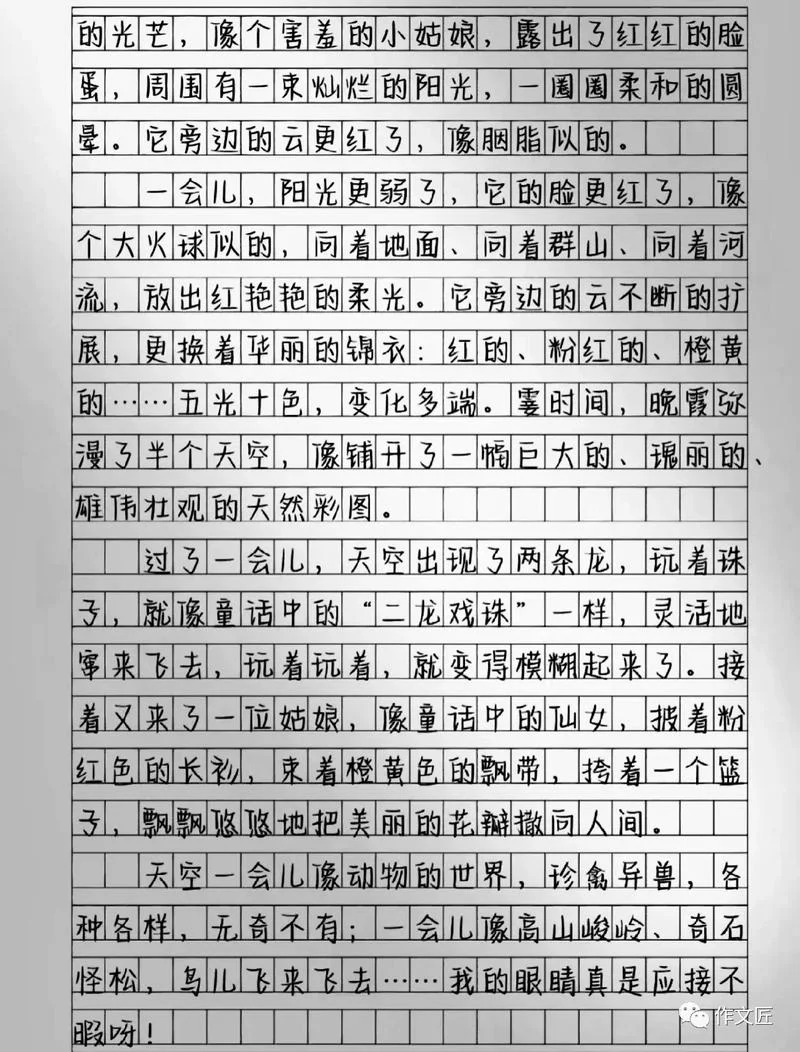 的光芒，像个害羞的小姑娘，露出了红红的脸
蛋，周围有一束灿烂的阳光，一圈圈柔和的圆
晕。它旁边的云更红了，像胭脂似的。
一会儿，阳光更弱了，它的脸更红了，像
个大火球似的，向着地面、向着群山、向着河
流，放出红艳艳的柔光。它旁边的云不断的扩
展，更换着华丽的锦衣：红的、粉红的、橙黄
的……五光十色，变化多端。霎时间，晚霞弥
漫了半个天空，像铺开了一幅巨大的、瑰丽的、
雄伟壮观的天然彩图。
过了一会儿，天空出现了两条龙，玩着珠
子，就像童话中的“二龙戏珠”一样，灵活地
窜来飞去，玩着玩着，就变得模糊起来了。接
着又来了一位姑娘，像童话中的仙女，披着粉
红色的长衫，束着橙黄色的飘带，挎着一个篮
子，飘飘悠悠地把美丽的花瓣撒向人间。
天空一会儿像动物的世界，珍禽异兽，各
种各样，无奇不有；一会儿像高山峻岭、奇石
怪松，鸟儿飞来飞去……我的眼睛真是应接不
暇呀！
作文匠